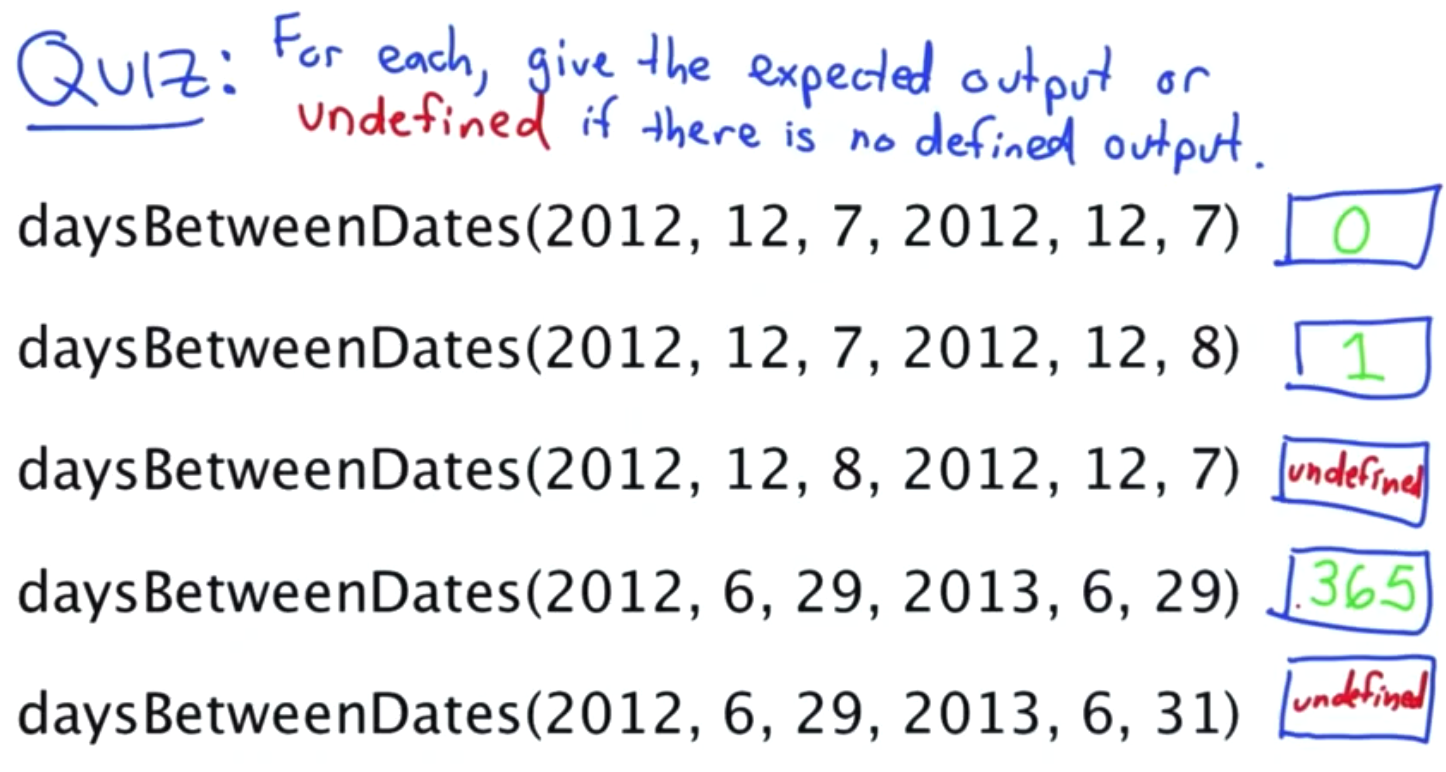 QUIZ: For each, give the expected output or
undefined if there is no defined output.
daysBetweenDates(2012, 12, 7, 2012, 12, 7) 0
daysBetweenDates(2012, 12, 7, 2012, 12, 8) 1
daysBetweenDates(2012, 12, 8, 2012, 12, 7) undefined
daysBetweenDates(2012, 6, 29, 2013, 6, 29) 365
daysBetweenDates(2012, 6, 29, 2013, 6, 31) undefined